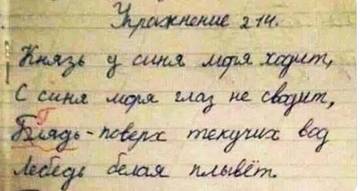 Упражнение 214.
Князь у синя моря ходит,
С синя моря глаз не сводит,
Блядь - поверх текучих вод
Лебедь белая плывёт.